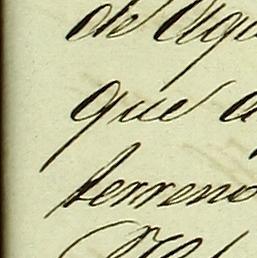 de Agu
que a
terreno